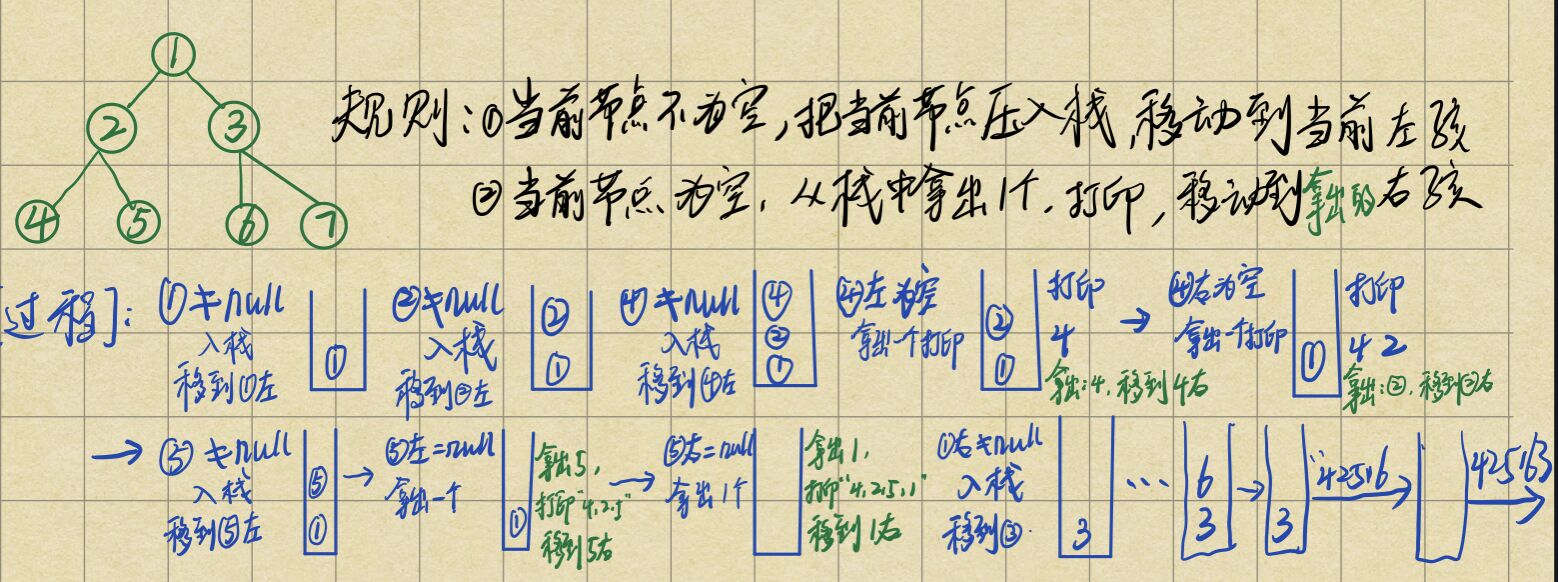 ①
② ③
④ ⑤ ⑥ ⑦
规则:①当前节点不为空,把当前节点压入栈,移动到当前左孩
②当前节点为空,从栈中拿出1个,打印,移动到拿出的右孩
[过程]:
①≠null
入栈
移到①左
①
②≠null
入栈
移到②左
②
①
④≠null
入栈
移到④左
④
②
①
④左为空
拿出一个打印
②
①
打印
4
拿出:4,移到4右
→
④右为空
拿出一个打印
①
打印
4 2
拿出:②,移到②右
→
⑤≠null
入栈
移到⑤左
⑤
①
→
⑤左=null
拿出一个
①
拿出5,
打印"4,2,5"
移到5右
→
⑤右=null
拿出1个
拿出1,
打印"4,2,5,1"
移到1右
①右≠null
入栈
移到③
3
...
6
3
→
3
"42516
→
425163
→